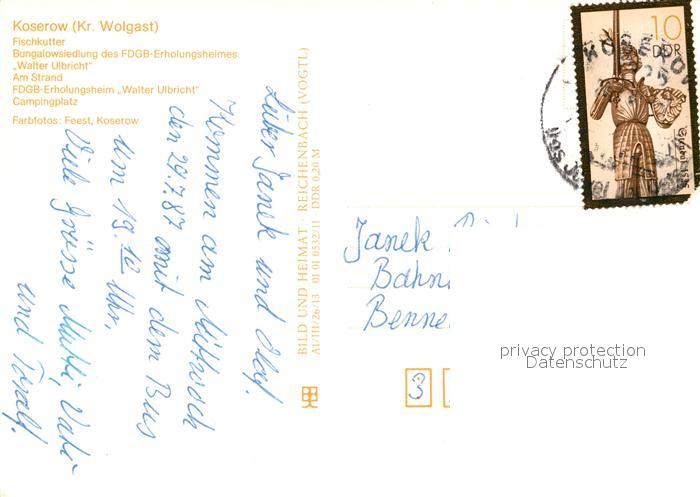 Koserow (Kr. Wolgast)
Fischkutter
Bungalowsiedlung des FDGB-Erholungsheimes
„Walter Ulbricht“
Am Strand
FDGB-Erholungsheim „Walter Ulbricht“
Campingplatz
Farbfotos: Feest, Koserow
Lieber Janek und Olaf!
Kommen am Mittwoch
den 29.7.87 mit dem Bus
um 19.10 Uhr.
Viele Grüsse Mutti, Vati
und Toralf.
BILD UND HEIMAT · REICHENBACH (VOGTL)
A1/III/26/13 01 01 0532/11 DDR 0,20 M
10
DDR
Janek
Bahn
Benne
3
privacy protection
Datenschutz